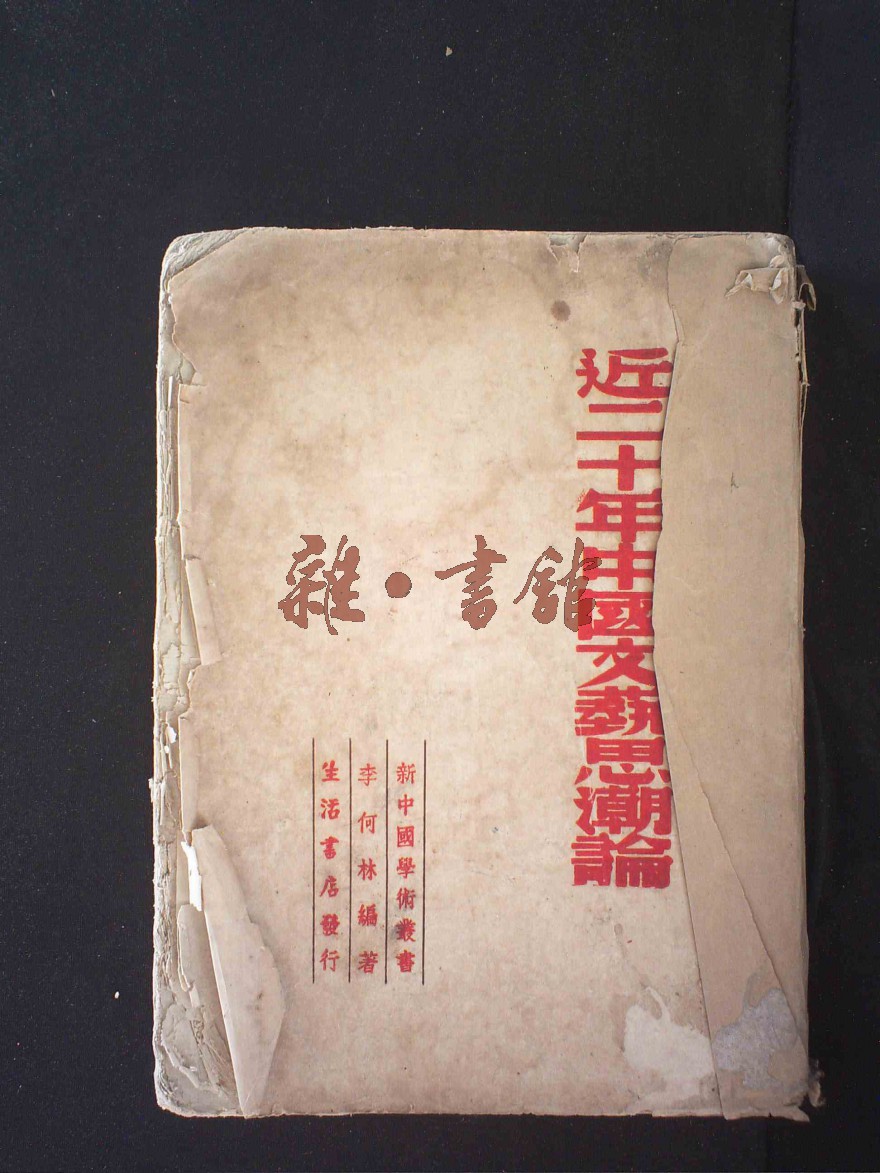 近二十年中國文藝思潮論
新中國學術叢書
李何林編著
生活書店發行
雜·書館